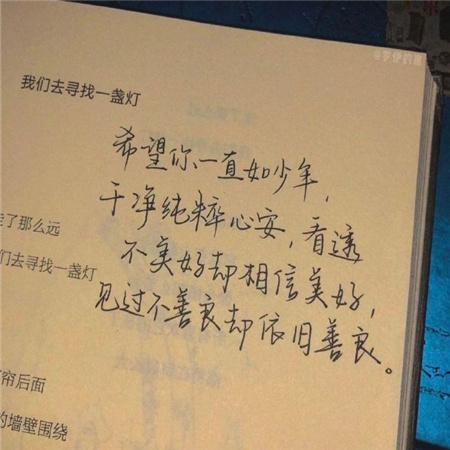 我们去寻找一盏灯
希望你一直如少年，
干净纯粹心安，看透
不美好却相信美好，
见过不善良却依旧善良。
了那么远
们去寻找一盏灯
帘后面
的墙壁围绕